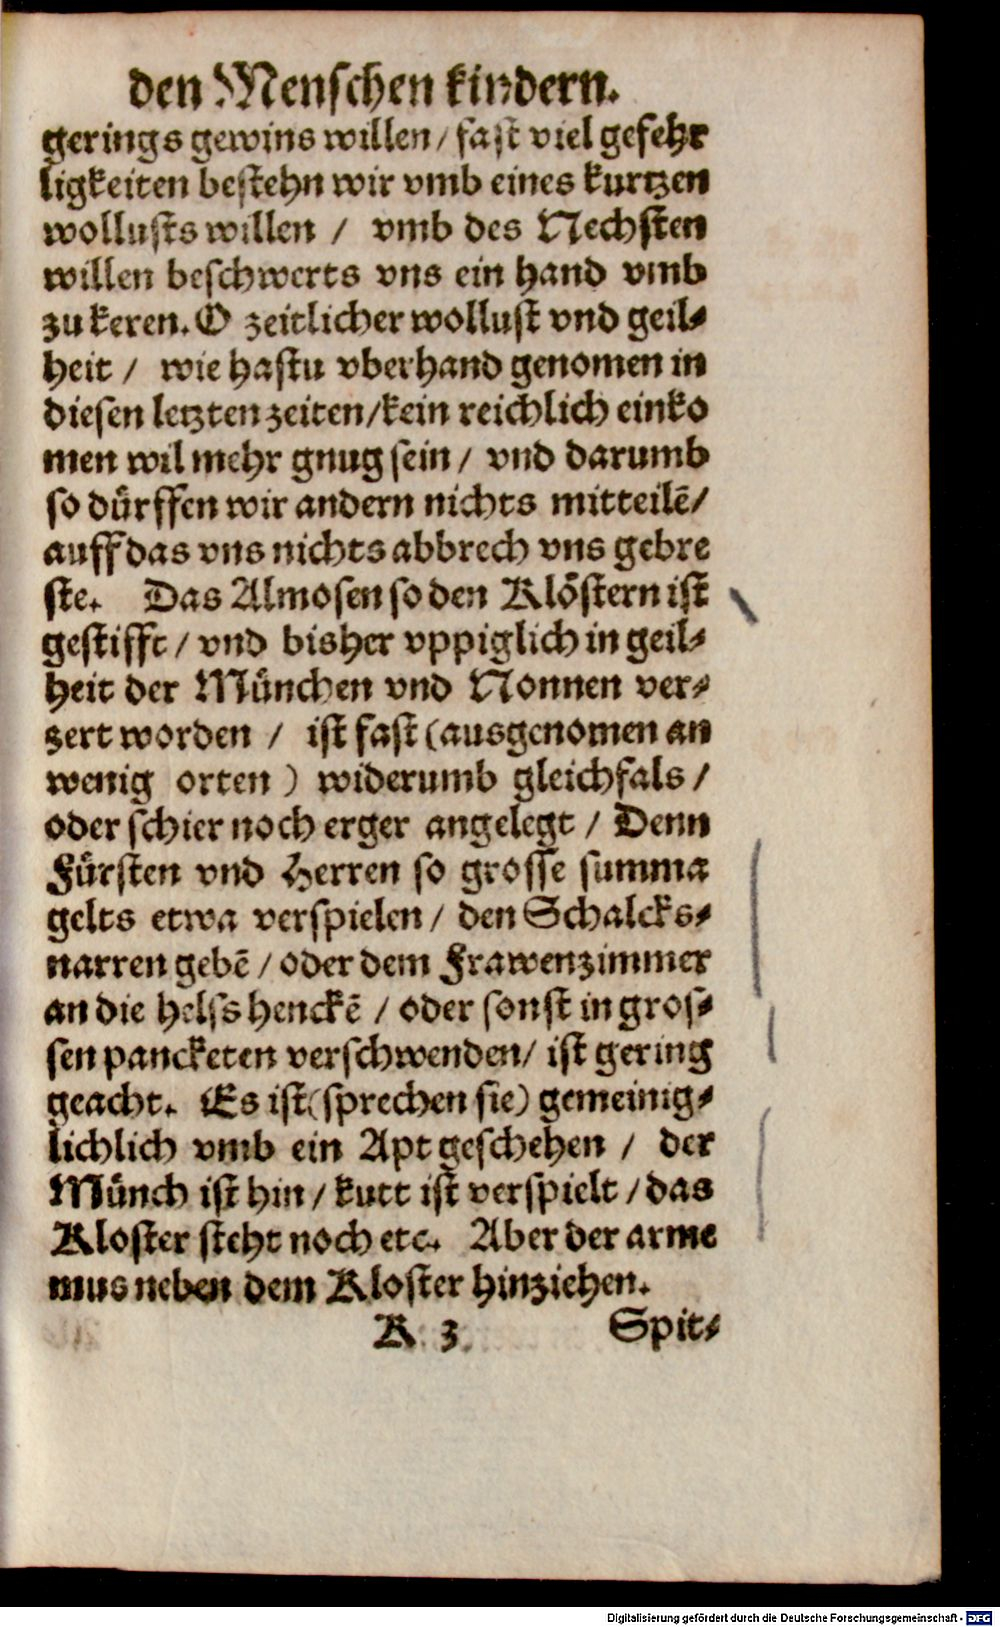 den Menschen kindern.
gerings gewins willen / fast viel gefehr
ligkeiten bestehn wir vmb eines kurtzen
wollusts willen / vmb des Nechsten
willen beschwerts vns ein hand vmb
zu keren. O zeitlicher wollust vnd geil⸗
heit / wie hastu vberhand genomen in
diesen letzten zeiten / kein reichlich einko
men wil mehr gnug sein / vnd darumb
so dürffen wir andern nichts mitteilē /
auff das vns nichts abbrech vns gebre
ste. Das Almosen so den Klöstern ist
gestifft / vnd bisher vppiglich in geil⸗
heit der München vnd Nonnen ver⸗
zert worden / ist fast (ausgenomen an
wenig orten) widerumb gleichfals /
oder schier noch erger angelegt / Denn
Fürsten vnd Herren so grosse summa
gelts etwa verspielen / den Schalcks⸗
narren gebē / oder dem Frawenzimmer
an die helss henckē / oder sonst in gros⸗
sen pancketen verschwenden / ist gering
geacht. Es ist (sprechen sie) gemeinig⸗
lichlich vmb ein Apt geschehen / der
Münch ist hin / kutt ist verspielt / das
Kloster steht noch etc. Aber der arme
mus neben dem Kloster hinziehen.
K 3 Spit⸗
Digitalisierung gefördert durch die Deutsche Forschungsgemeinschaft - DFG